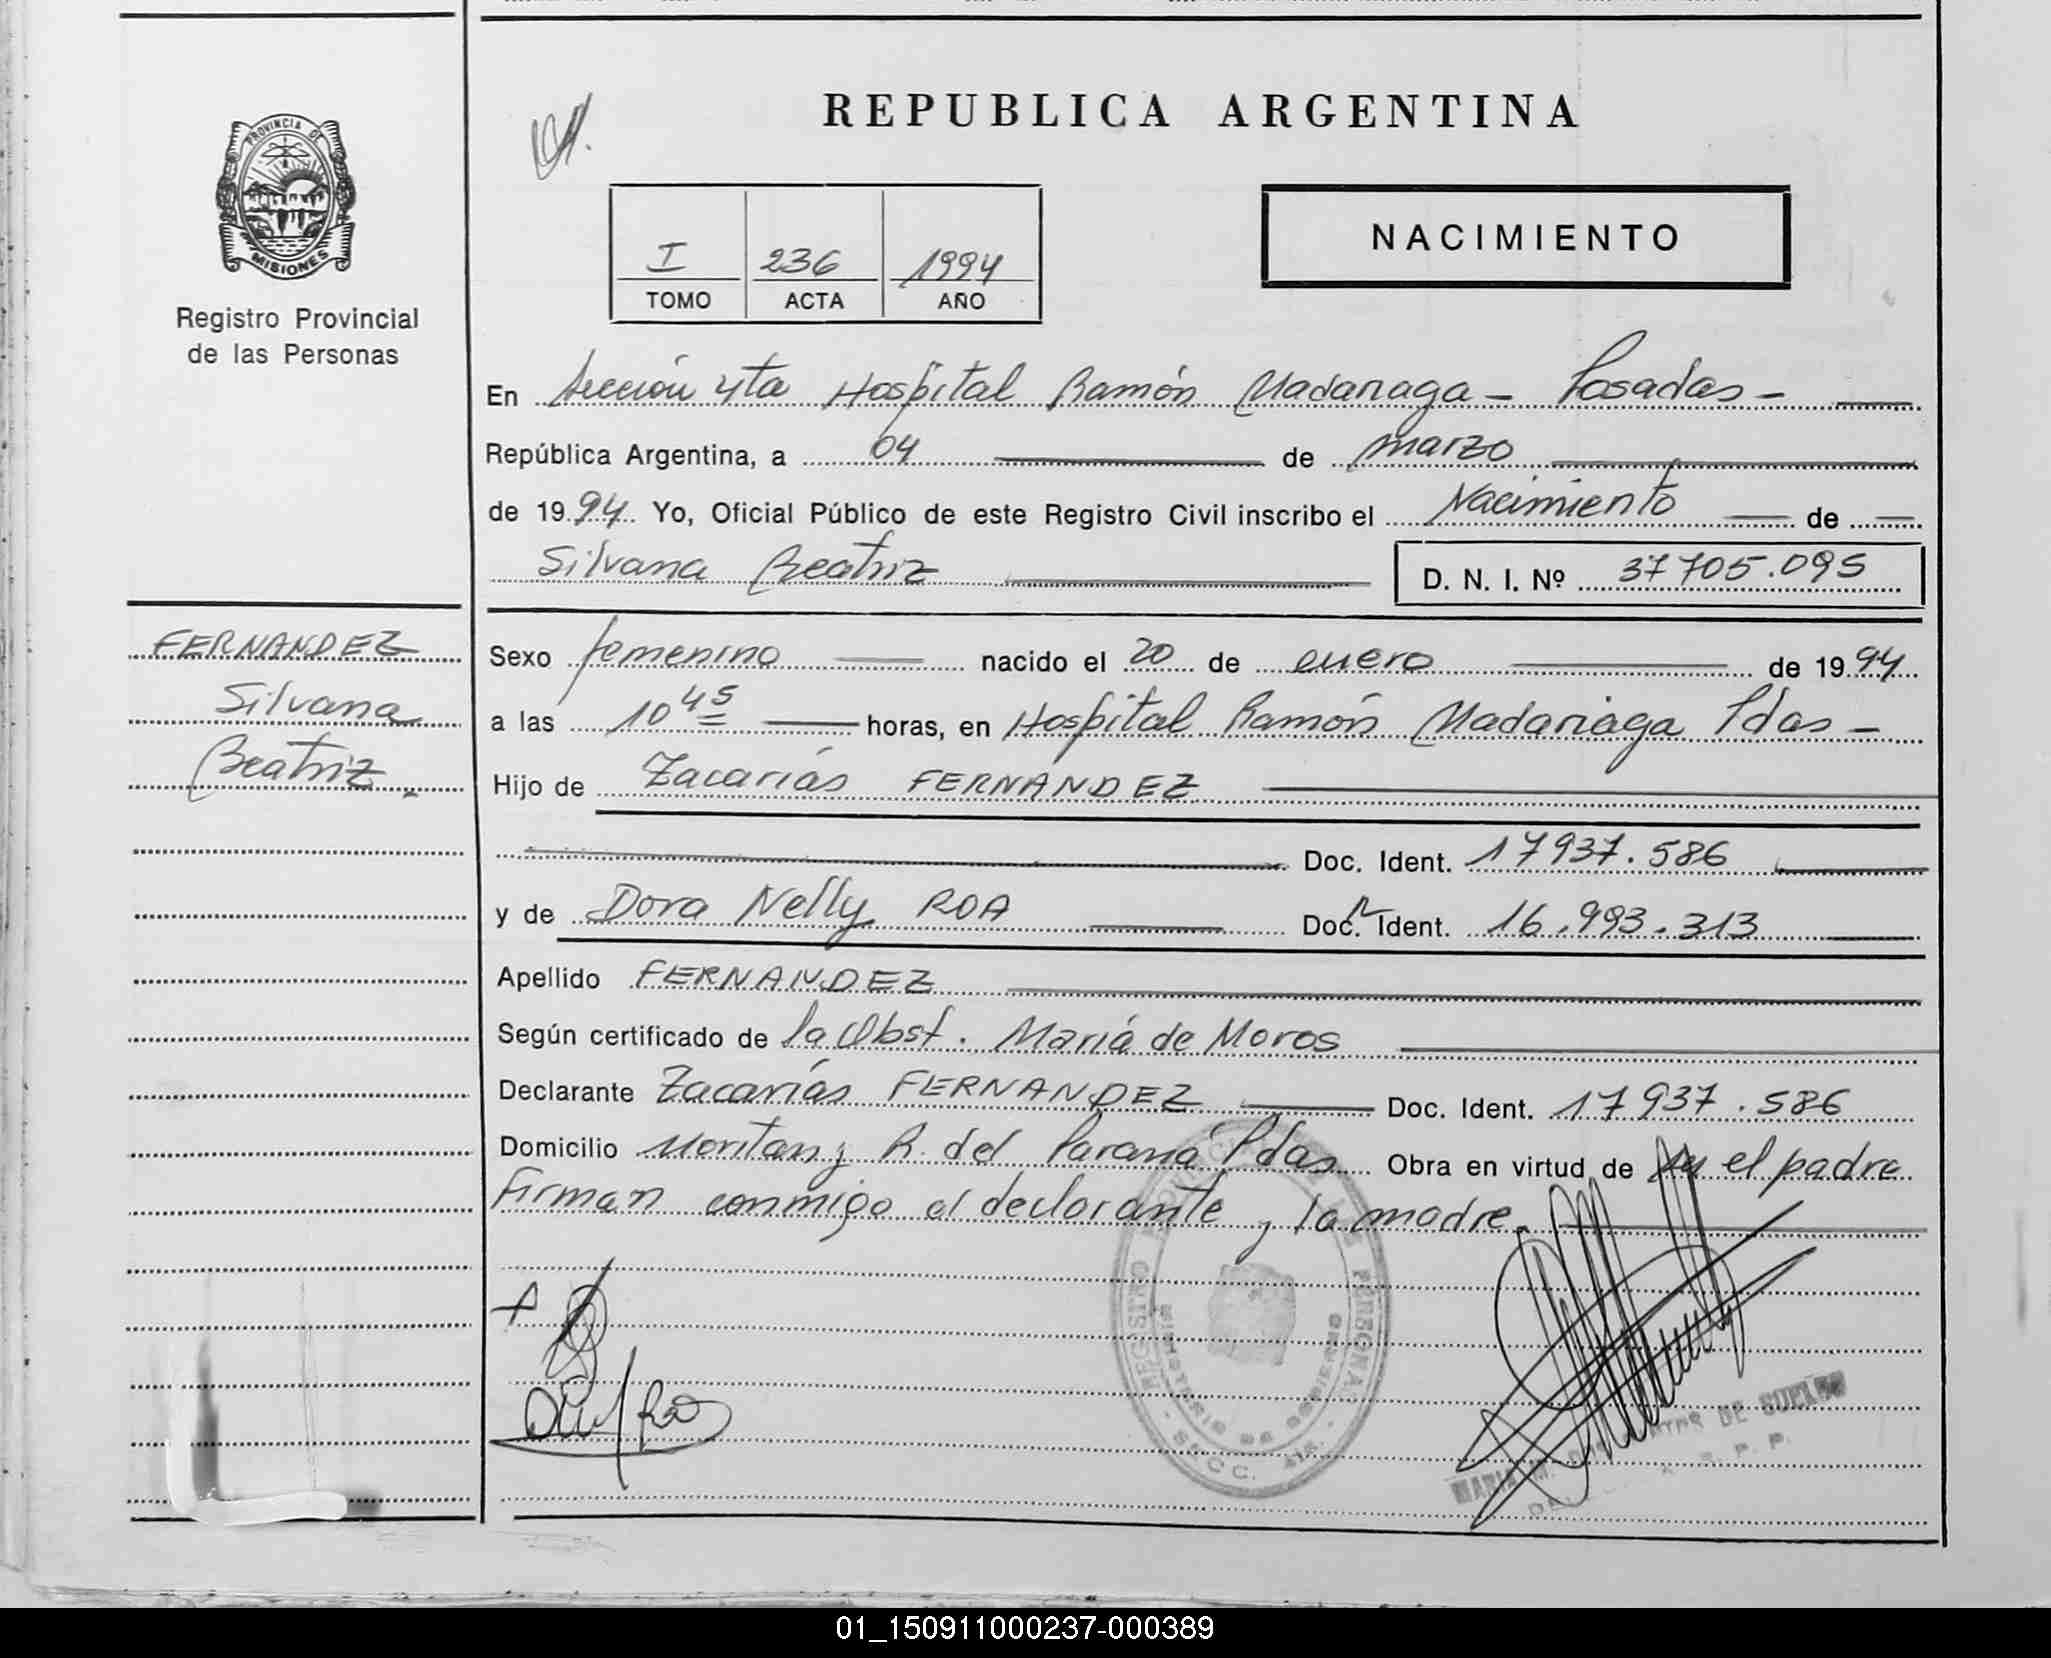 REPUBLICA ARGENTINA
PROVINCIA DE
MISIONES
Registro Provincial
de las Personas
I 236 1994
TOMO ACTA AÑO
NACIMIENTO
En Sección 4ta Hospital Ramón Madariaga - Posadas -
República Argentina, a 04 de marzo
de 1994 Yo, Oficial Público de este Registro Civil inscribo el Nacimiento de
Silvana Beatriz D. N. I. Nº 37705.095
FERNANDEZ
Silvana
Beatriz.
Sexo femenino nacido el 20 de enero de 1994
a las 10 45 horas, en Hospital Ramón Madariaga Pdas -
Hijo de Zacarías FERNANDEZ
Doc. Ident. 17937.586
y de Dora Nelly ROA Doc. Ident. 16.993.313
Apellido FERNANDEZ
Según certificado de la Obst. María de Moros
Declarante Zacarías FERNANDEZ Doc. Ident. 17937.586
Domicilio y R. del Paraná Pdas Obra en virtud de el padre
Firman conmigo el declarante y la madre.
REGISTRO PROVINCIAL DE LAS PERSONAS
MINISTERIO DE GOBIERNO
DE
01_150911000237-000389